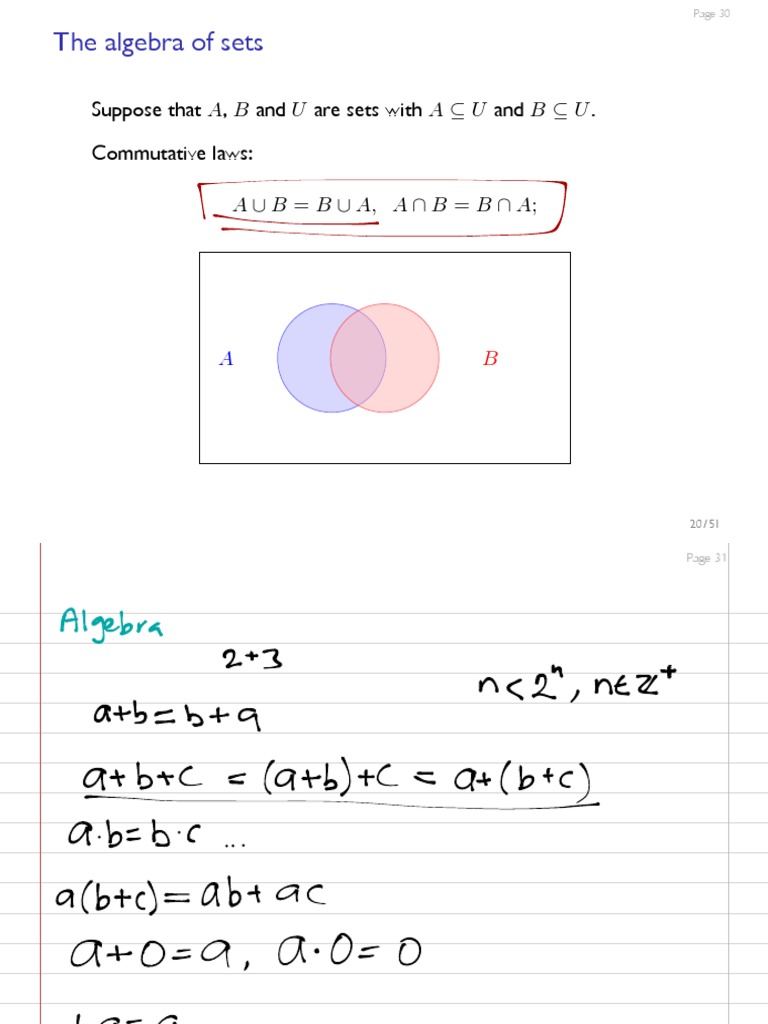 Page 30
The algebra of sets
Suppose that A, B and U are sets with A ⊆ U and B ⊆ U.
Commutative laws:
A ∪ B = B ∪ A, A ∩ B = B ∩ A;
A
B
20/51
Page 31
Algebra
2+3
n<2ⁿ, n∈ℤ⁺
a+b=b+a
a+b+c = (a+b)+c = a+(b+c)
a·b=b·c ...
a(b+c)=ab+ac
a+0=a, a·0=0